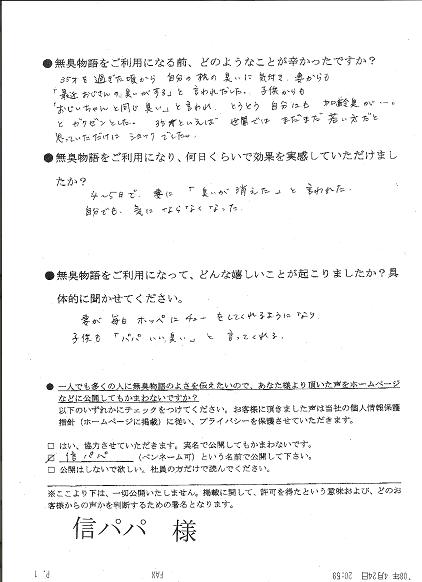 ●無臭物語をご利用になる前、どのようなことが辛かったですか？
35才を過ぎた頃から 自分の枕の臭いに気付き、妻からも
「最近おじさんの臭いがする」と言われだした。子供からも
「おじいちゃんと同じ臭い」と言われ、とうとう 自分にも 加齢臭が…。
とガクゼンとした。 35才といえば 世間では まだまだ 若い方だと
思っていただけに ショックでした。
●無臭物語をご利用になり、何日くらいで効果を実感していただけまし
たか？
4〜5日で、妻に「臭いが消えた」と言われた。
自分でも、気にならなくなった。
●無臭物語をご利用になって、どんな嬉しいことが起こりましたか？具
体的に聞かせてください。
妻が毎日 ホッペにチューをしてくれるようになり
子供も「パパいい臭い」と言ってくれる。
●一人でも多くの人に無臭物語のよさを伝えたいので、あなた様より頂いた声をホームページ
などに公開してもかまわないですか？
以下のいずれかにチェックをつけてください。お客様に頂きました声は当社の個人情報保護
指針（ホームページに掲載）に従い、プライバシーを保護させていただきます。
□ はい、協力させていただきます。実名で公開してもかまわないです。
☑ 信パパ （ペンネーム可）という名前で公開して下さい。
□ 公開はしないで欲しい。社員の方だけで読んでください。
※ここより下は、一切公開いたしません。掲載に関して、許可を得たという意味および、どのお
客様からの声かを判断するための署名となります。
信パパ 様
'08年 4月24日 20:59 FAX P. 1